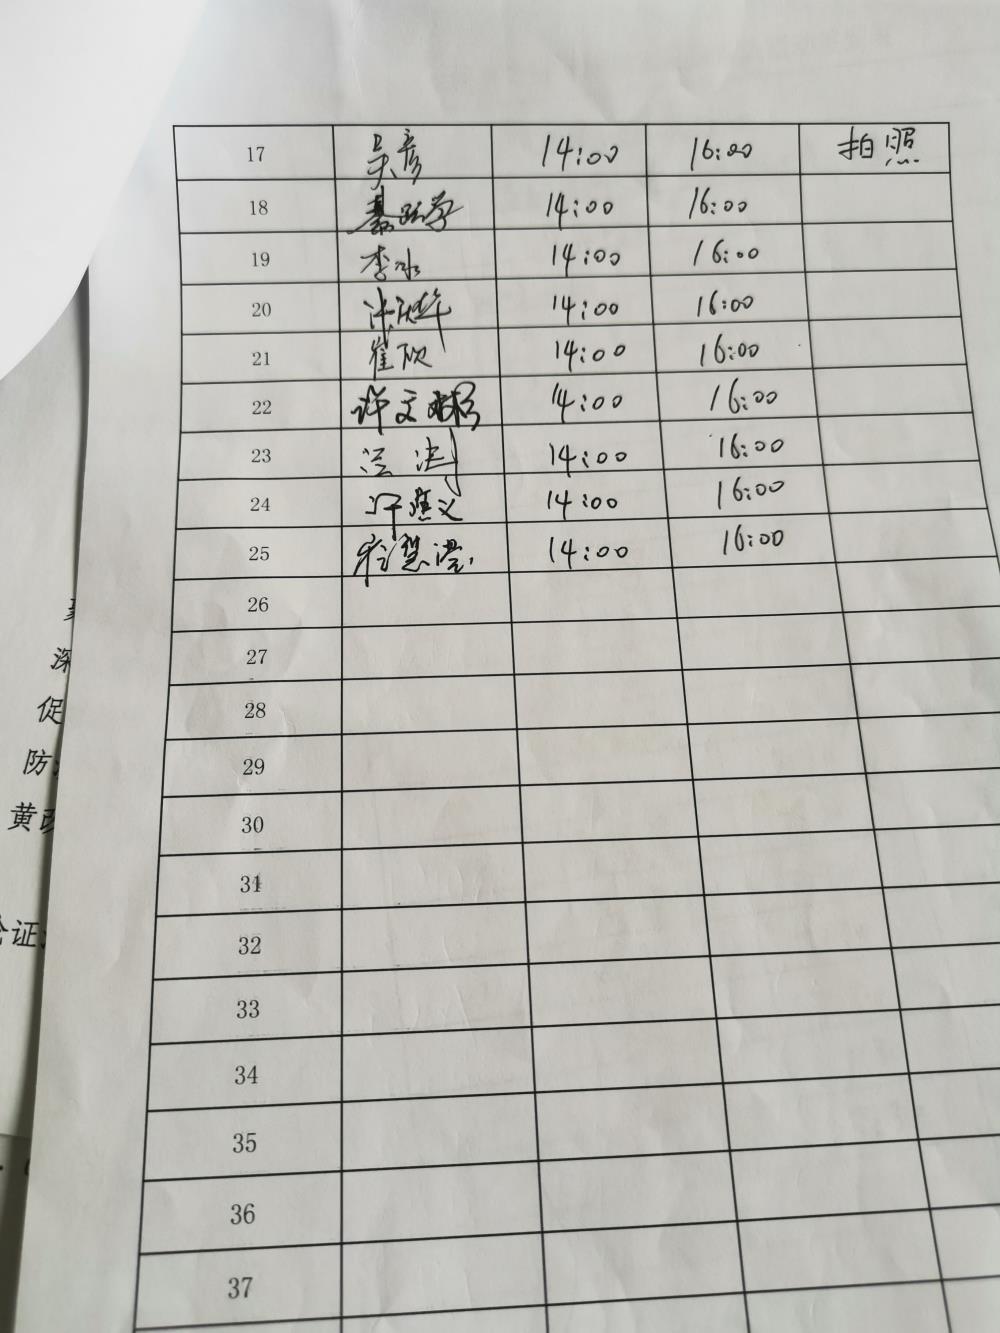 17 吴彦 14:00 16:00 拍照
18 14:00 16:00
19 李冰 14:00 16:00
20 14:00 16:00
21 崔欣 14:00 16:00
22 许文 14:00 16:00
23 14:00 16:00
24 14:00 16:00
25 14:00 16:00
26
27
28
29
30
31
32
33
34
35
36
37
深
促
防
黄改
论证